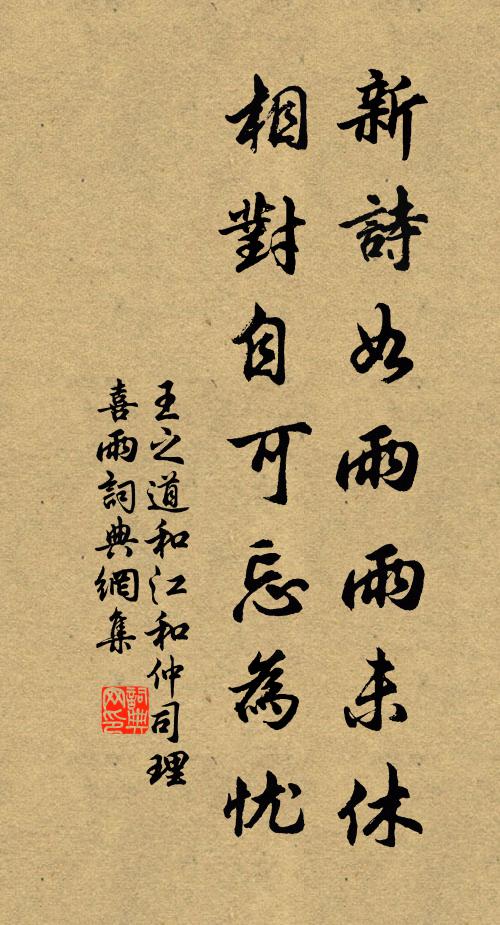 新詩如雨雨未休
相對自可忘為忧
王之道和江和仲司理
喜雨詞典網集
詞典网印